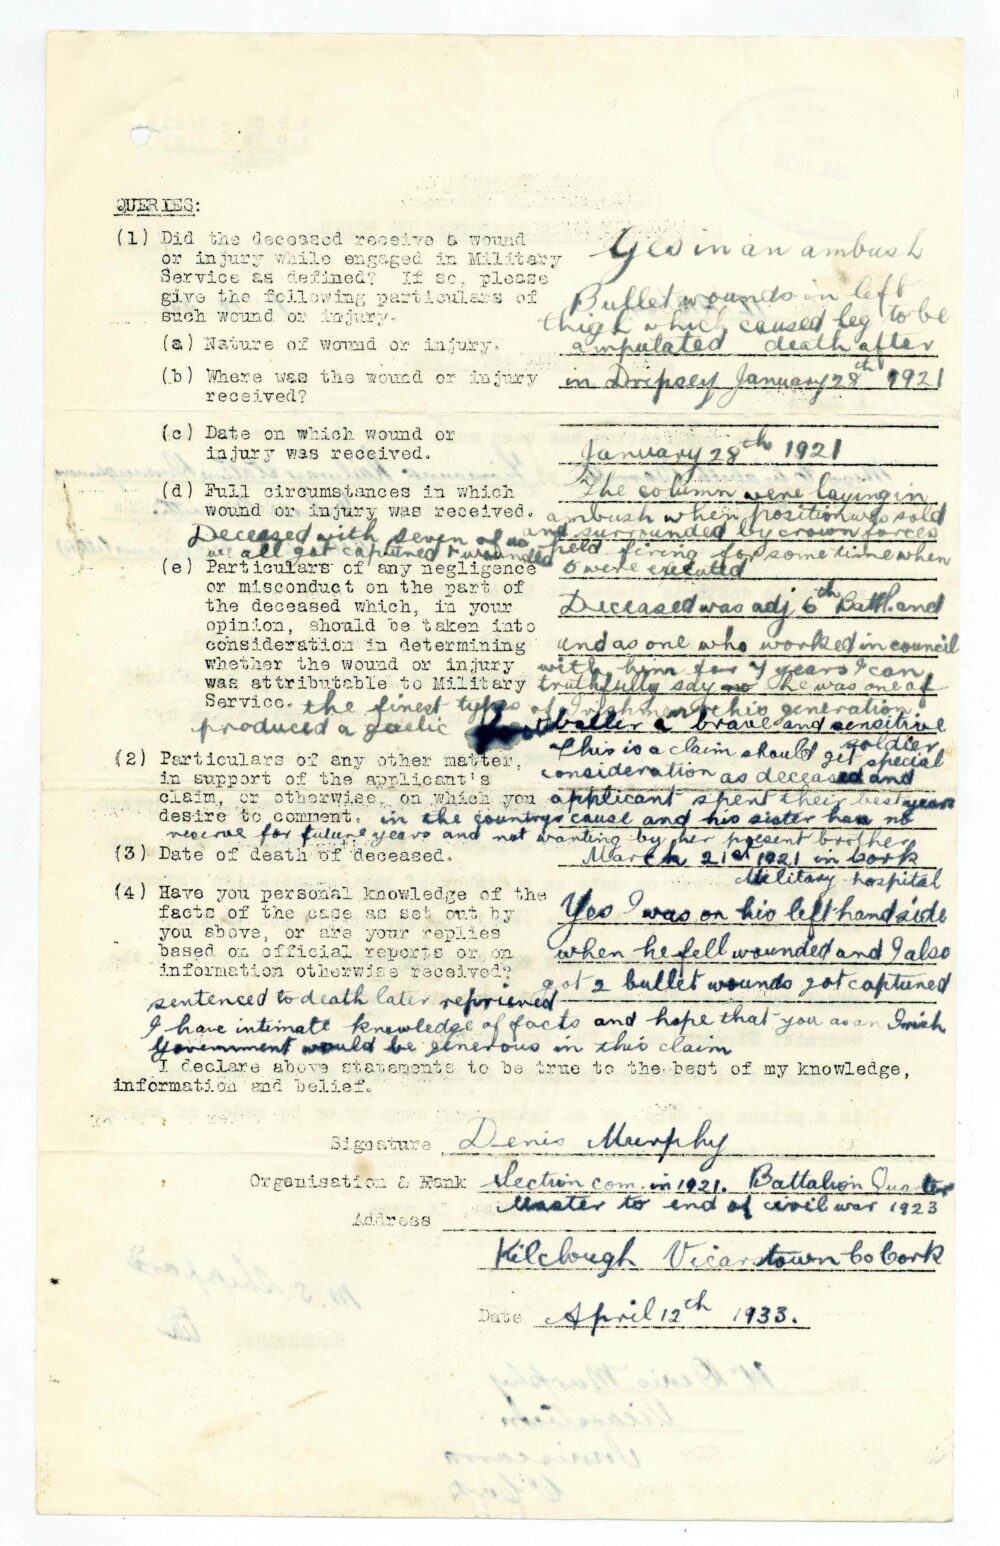 QUERIES:
(1) Did the deceased receive a wound
or injury while engaged in Military
Service as defined? If so, please
give the following particulars of
such wound or injury.
Yes in an ambush
(a) Nature of wound or injury.
Bullet wounds in left
thigh which caused leg to be
amputated death after
(b) Where was the wound or injury
received?
in Dripsey January 28th 1921
(c) Date on which wound or
injury was received.
January 28th 1921
(d) Full circumstances in which
wound or injury was received.
The column were laying in
ambush when position was sold
and surrounded by crown forces
held firing for some time when
Deceased with seven of us
we all got captured & wounded
5 were executed
(e) Particulars of any negligence
or misconduct on the part of
the deceased which, in your
opinion, should be taken into
consideration in determining
whether the wound or injury
was attributable to Military
Service.
Deceased was adj 6th Batt. and
and as one who worked in council
with him for 7 years I can
truthfully say no he was one of
the finest types of Irishman this generation
produced a gaelic footballer a brave and sensitive
soldier
(2) Particulars of any other matter,
in support of the applicant's
claim, or otherwise, on which you
desire to comment.
This is a claim should get special
consideration as deceased and
applicant spent their best years
in the countrys cause and his sister has no
reserve for future years and not wanting by her present brother
(3) Date of death of deceased.
March 21st 1921 in Cork
Military hospital
(4) Have you personal knowledge of the
facts of the case as set out by
you above, or are your replies
based on official reports or on
information otherwise received?
Yes I was on his left hand side
when he fell wounded and I also
got 2 bullet wounds got captured
sentenced to death later reprieved
I have intimate knowledge of facts and hope that you as an Irish
Government would be generous in this claim
I declare above statements to be true to the best of my knowledge,
information and belief.
Signature Denis Murphy
Organisation & Rank Section com. in 1921. Battalion Quarter
Master to end of civil war 1923
Address
Kilclough Vicarstown Co Cork
Date April 12th 1933.